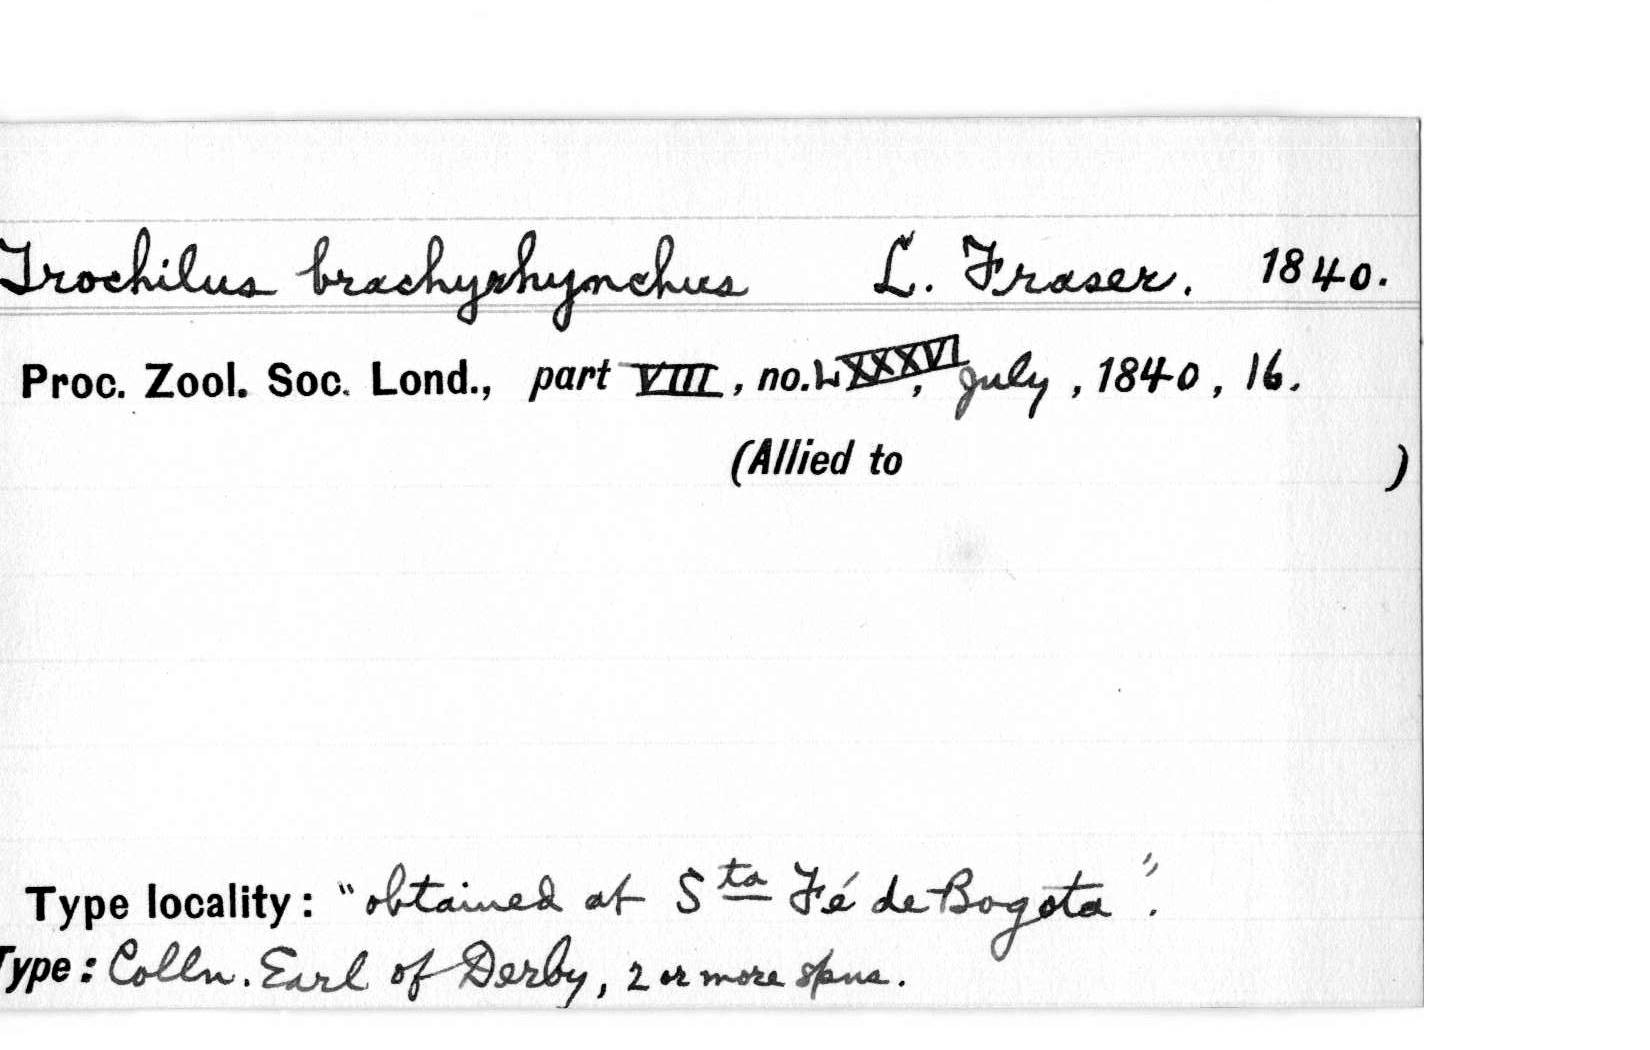 Trochilus brachyrhynchus L. Fraser. 1840.
Proc. Zool. Soc. Lond., part VIII, no. LXXXVI, July, 1840, 16.
(Allied to )
Type locality: "obtained at Sta Fé de Bogota".
Type: Colln. Earl of Derby, 2 or more spns.